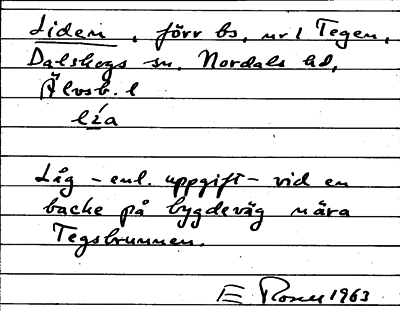 Liden, förr bs, nr 1 Tegen,
Dalskogs sn, Nordals hd,
Älvsb. l
lí̲a
Låg – enl. uppgift – vid en
backe på bygdeväg nära
Tegsbrunnen.
E 1963